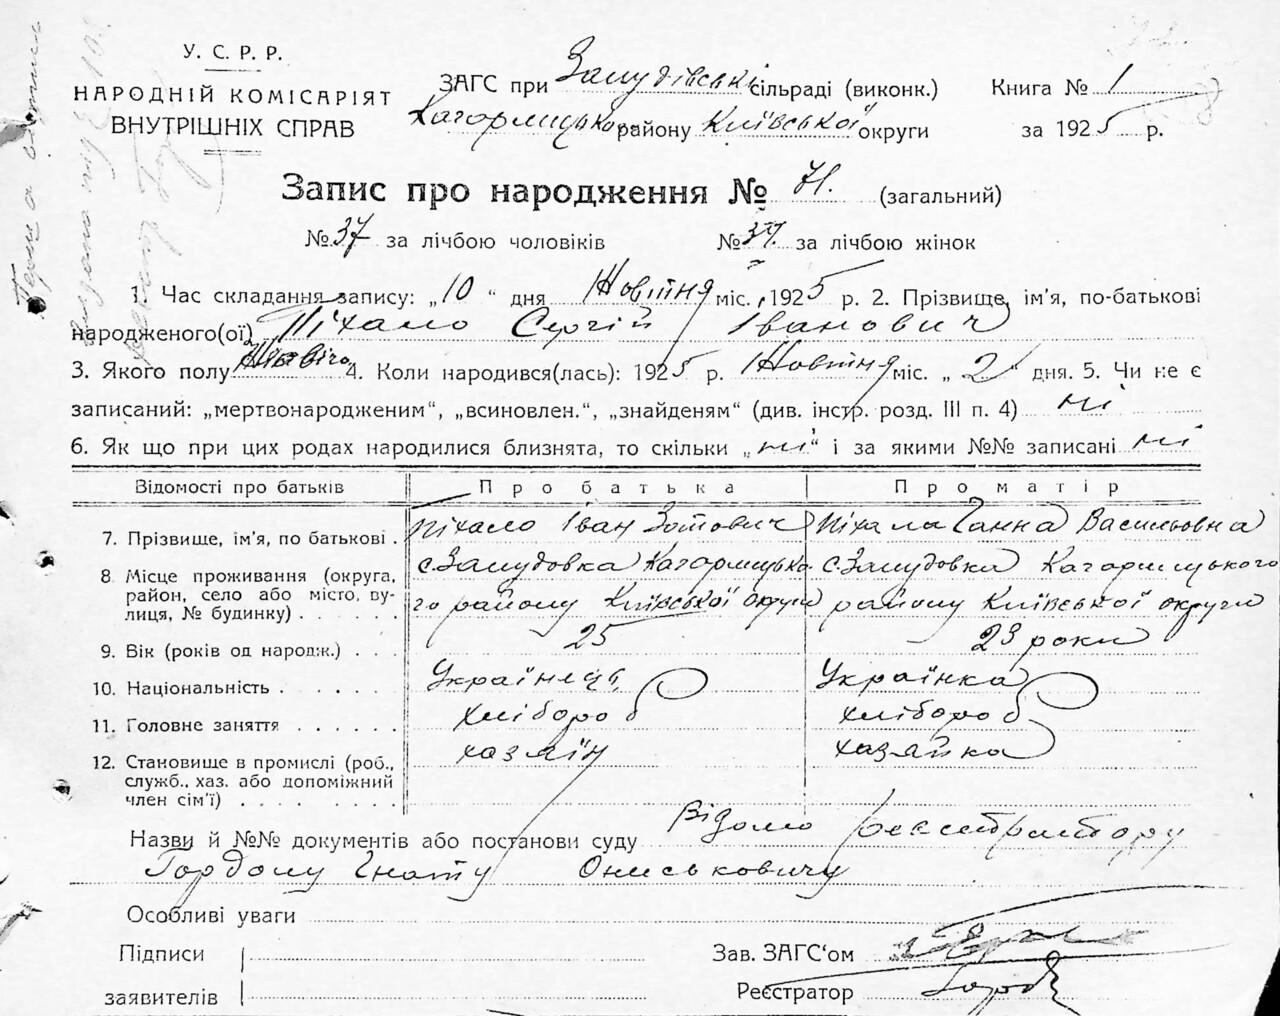 У. С. Р. Р.
НАРОДНІЙ КОМІСАРІЯТ
ВНУТРІШНІХ СПРАВ
ЗАГС при сільраді (виконк.)
Кагорлицького району Київської округи
Книга № 1
за 1925 р.
Запис про народження № 71. (загальний)
№ 37 за лічбою чоловіків № за лічбою жінок
1. Час складання запису: „10 “ дня Жовтня міс. 1925 р. 2. Прізвище, ім’я, по-батькові
народженого(ої) Піхало Сергій Іванович
3. Якого полу 4. Коли народився(лась): 1925 р. Жовтня міс. „ 2 “ дня. 5. Чи не є
записаний: „мертвонародженим“, „всиновлен.“, „знайденям“ (див. інстр. розд. III п. 4) ні
6. Як що при цих родах народилися близнята, то скільки „ні“ і за якими №№ записані ні
Відомості про батьків Про батька Про матір
7. Прізвище, ім’я, по батькові . Піхало Іван Зотович Піхала Ганна Васильовна
8 Місце проживання (округа, район, село або місто, вулиця, № будинку) . . . . . .
с. Замудовка Кагорлицько- с. Замудовка Кагорлицького
го району Київської округи району Київської округи
9. Вік (років од народж.) . . . 25 23 роки
10. Національність . . . . . . Українець Українка
11. Головне заняття . . . . . . хлібороб хлібороб
12. Становище в промислі (роб., служб., хаз. або допоміжний член сім’ї) . . . . . . . . хазяїн хазяйка
Назви й №№ документів або постанови суду Відомо реєстратору
Гордому Гнату Ониськовичу
Особливі уваги
Підписи
заявителів
Зав. ЗАГС‘ом
Реєстратор